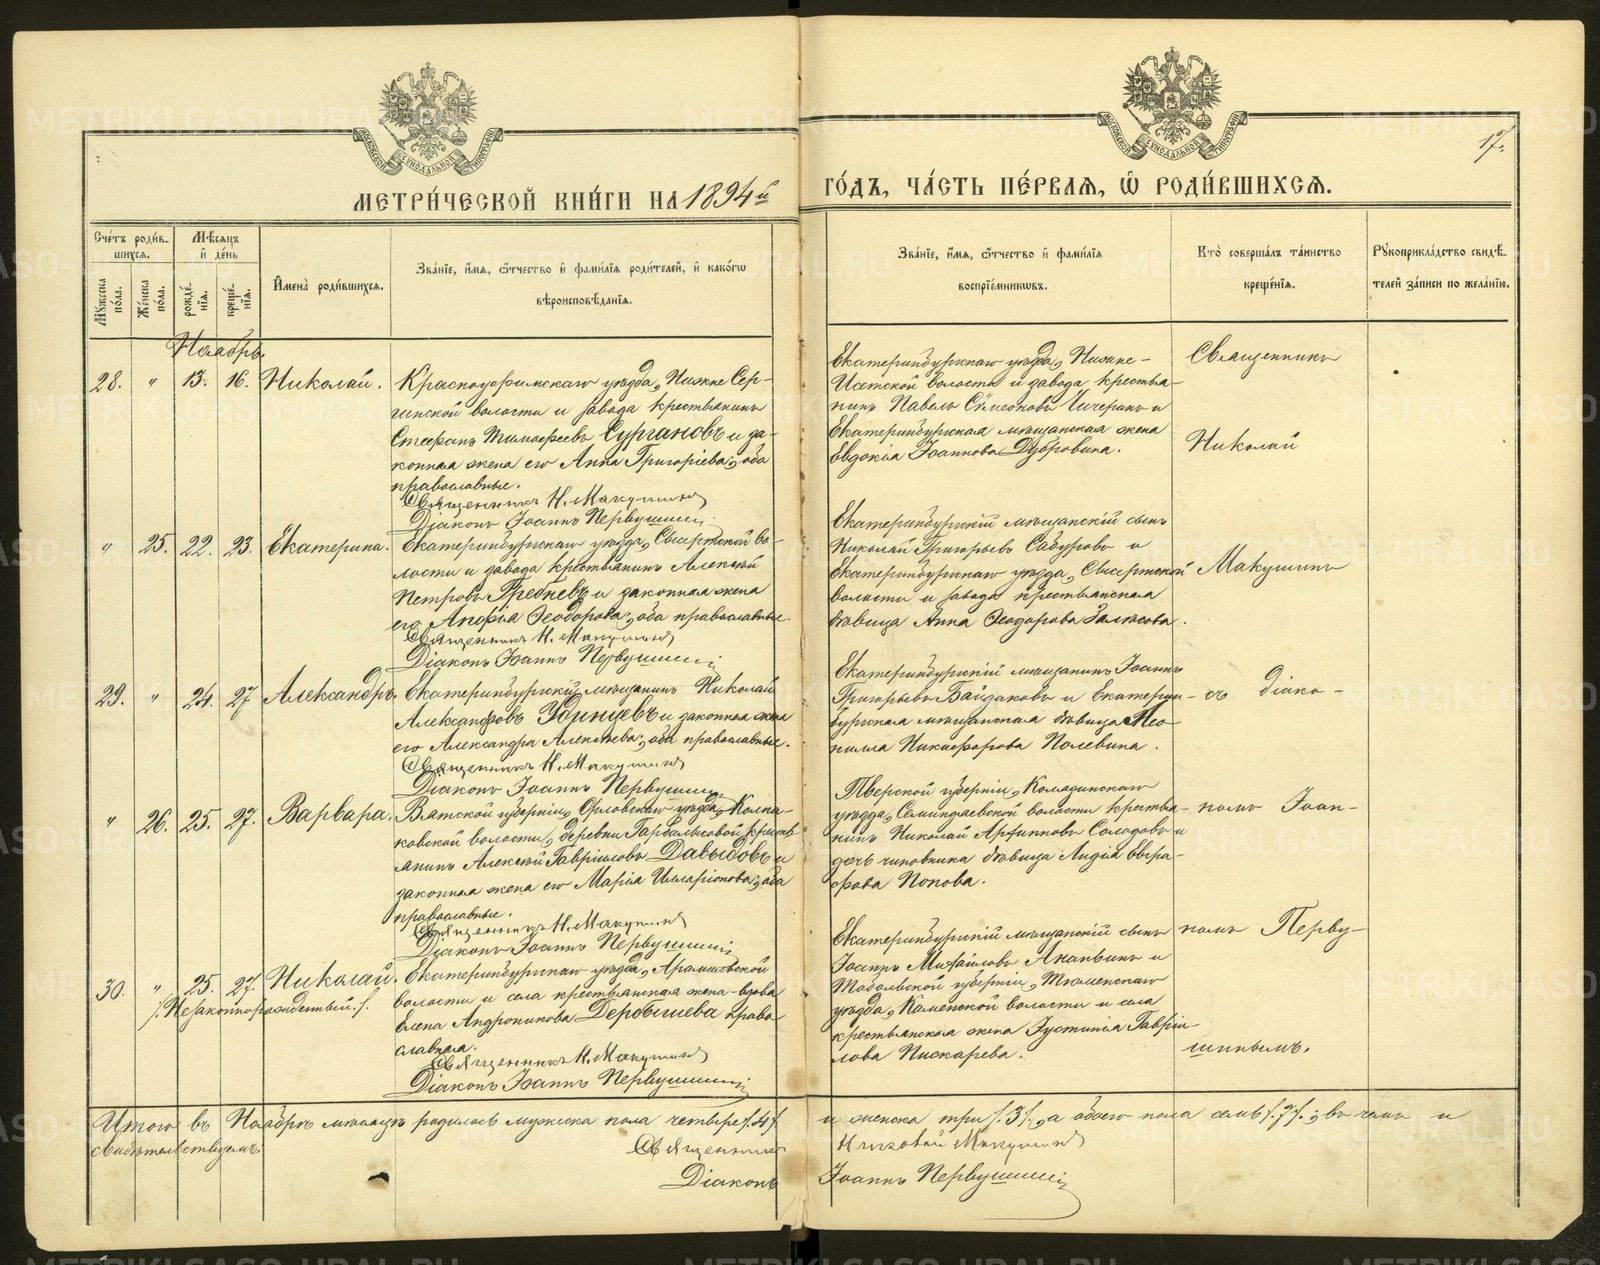 МЕТРИ́ЧЕСКОЙ КНИ́ГИ НА 1894й
ГО́ДЪ, ЧА́СТЬ ПЕ́РВАЯ, Ѡ РОДИ́ВШИХСЯ.
17.
Сче́тъ роди́в-
шихся.
Му́жеска
по́ла.
Же́нска
по́ла.
Мѣ́сяцъ
и̂ де́нь
рожде́-
нїя.
креще́-
нїя.
И҆мена̀ роди́вшихся.
Зва́нїе, и҆́мя, ѻ҆́тчество и҆ фами́лїя роди́телей, и҆ како́гѡ
вѣроисповѣ́данїя.
Зва́нїе, и҆́мя, ѻ҆́тчество и҆ фами́лїя
воспрїе́мниковъ.
Кто̀ соверша́лъ та́инство
креще́нїя.
Рукоприкла́дство свидѣ́-
телей за́писи по жела́нїю.
Ноябрь.
28. " 13. 16. Николай.
Красноуфимскаго уѣзда, Нижне Сер-
гинской волости и завода крестьянинъ
Стефанъ Тимофеевъ Сургановъ и за-
конная жена его Анна Григорiева; оба
православные.
Священникъ Н. Макушинъ
Дiаконъ Iоаннъ Первушинъ
Екатеринбургскаго уѣзда, Нижне-
Исетской волости и завода крестья-
нинъ Павелъ Сѵмеоновъ Чичеринъ и
Екатеринбургская мѣщанская жена
Евдокiя Iоаннова Дубровина.
Священникъ
Николай
" 25. 22. 23. Екатерина.
Екатеринбургскаго уѣзда, Сысертской во-
лости и завода крестьянинъ Алексѣй
Петровъ Гребневъ и законная жена
его Анфiя Ѳеодорова; оба православные.
Священникъ Н. Макушинъ
Дiаконъ Iоаннъ Первушинъ
Екатеринбургскiй мѣщанскiй сынъ
Николай Григорьевъ Сабуровъ и
Екатеринбургскаго уѣзда, Сысертской
волости и завода крестьянская
дѣвица Анна Ѳеодорова
Макушинъ
29. " 24. 27 Александръ.
Екатеринбургскiй мѣщанинъ Николай
Александровъ Удинцевъ и законная жена
его Александра Алексѣева; оба православные.
Священникъ Н. Макушинъ
Дiаконъ Iоаннъ Первушинъ
Екатеринбургскiй мѣщанинъ Iоаннъ
Григорьевъ Байдаковъ и Екатерин-
бургская мѣщанская дѣвица Нео-
нилла Никифорова Полевина.
съ дiако-
" 26. 25. 27. Варвара.
Вятской губернiи, Орловскаго уѣзда, Колка-
ковской волости, деревни крестья-
нинъ Алексѣй Гаврiиловъ Давыдовъ и
законная жена его Марiя Илларiонова; оба
православные.
Священникъ Н. Макушинъ
Дiаконъ Iоаннъ Первушинъ
Тверской губернiи, Калязинскаго
уѣзда, Семендяевской волости крестья-
нинъ Николай Архипповъ Солодовъ и
дочь чиновника дѣвица Лидiя Евгра-
фова Попова.
номъ Iоан-
30. " 25. 27. Николай.
/. Незаконнорожденный. /.
Екатеринбургскаго уѣзда, Арамильской
волости и села крестьянская жена-вдова
Елена Андроникова Дербышева право-
славная.
Священникъ Н. Макушинъ
Дiаконъ Iоаннъ Первушинъ
Екатеринбургскiй мѣщанскiй сынъ
Iоаннъ Михайловъ Ананьинъ и
Тобольской губернiи, Тюменскаго
уѣзда, Каменской волости и села
крестьянская жена Iустинiя Гаврiи-
лова Пискарева.
номъ Перву-
шинымъ.
Итого въ Ноябрѣ мѣсяцѣ родилось мужска пола четверо /. 4 /. и женска три /. 3 /., а обоего пола семь /. 7 /.; въ чемъ и
свидѣтельствуемъ:
Священникъ Николай Макушинъ
Дiаконъ Iоаннъ Первушинъ
METRIKI.GASO-URAL.RU